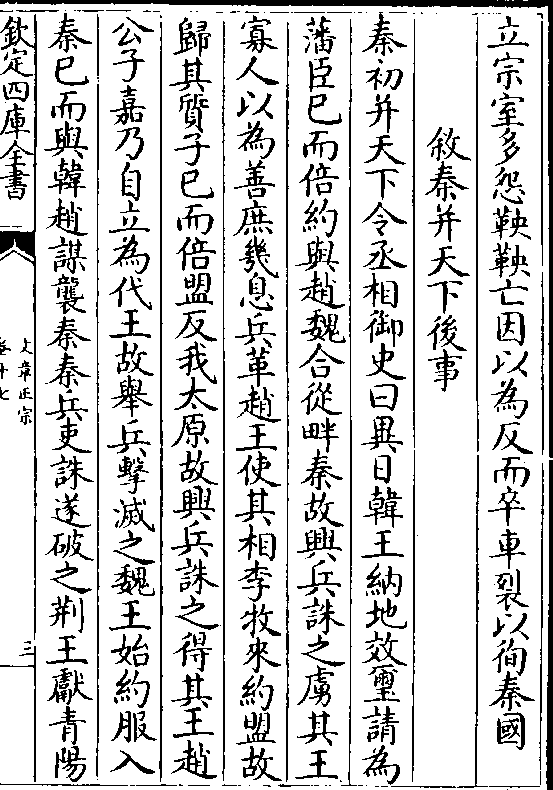 立宗室多怨鞅鞅亡因以為反而卒車裂以徇秦國
敘秦并天下後事
秦初并天下令丞相御史曰異日韓王納地效璽請為
藩臣已而倍約與趙魏合從畔秦故興兵誅之虜其王
寡人以為善庶幾息兵革趙王使其相李牧來約盟故
歸其質子已而倍盟反我太原故興兵誅之得其王趙
公子嘉乃自立為代王故舉兵擊滅之魏王始約服入
秦已而與韓趙謀襲秦秦兵吏誅遂破之荆王獻青陽
欽定四庫全書
文章正宗
卷十七
三